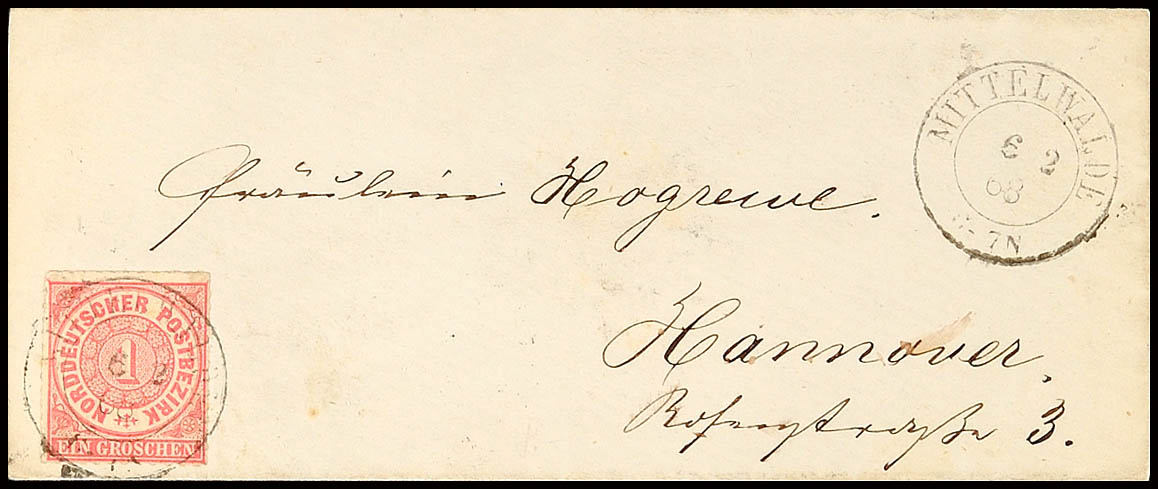 MITTELWALDE
6 2
68
6-7N
Fräulein Hogrewe.
Hannover.
Rosenstraße 3.
NORDDEUTSCHER POSTBEZIRK
1
EIN GROSCHEN
6 2
68